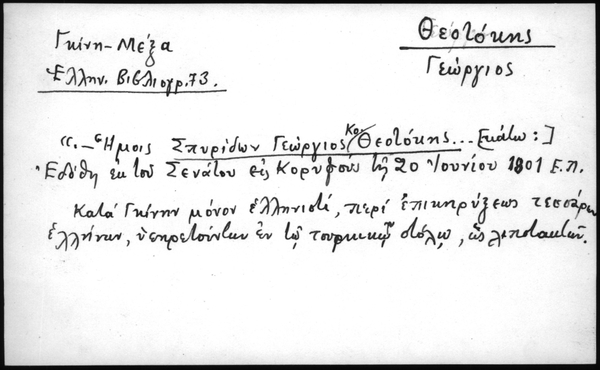 Γκίνη-Μέξα
Ἑλλην. Βιβλιογρ. 73.
Θεοτόκης
Γεώργιος
«.-Ἡμεῖς Σπυρίδων Γεώργιος Κο: Θεοτόκης... [κάτω:]
Ἐδόθη ἐκ τοῦ Σενάτου εἰς Κορυφούς τῇ 20 Ἰουνίου 1801 Ε.Π.
Κατά Γκίνην μόνον ἑλληνιστί, περί ἐπικηρύξεως τεσσάρων
ἑλλήνων, ὑπηρετούντων ἐν τῷ τουρκικῷ στόλῳ, ὡς λιποτακτῶν.